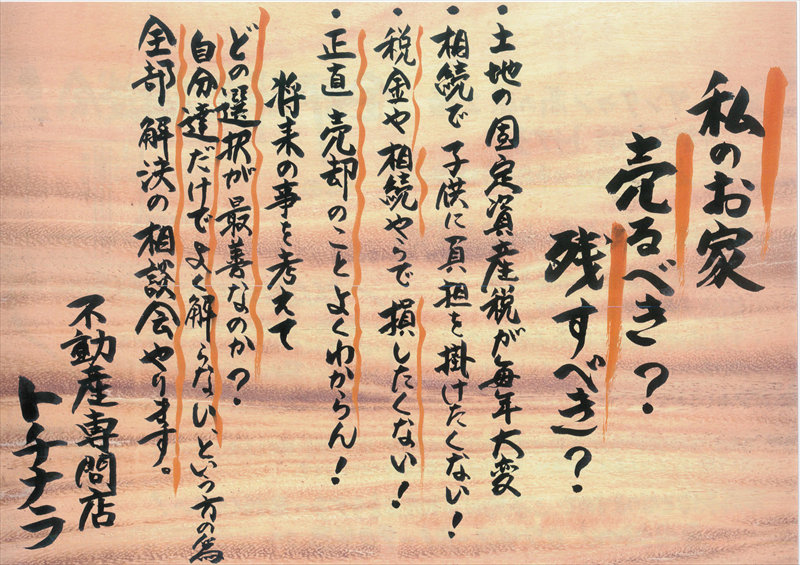 私のお家
売るべき？
残すべき？
・土地の固定資産税が毎年大変
・相続で子供に負担を掛けたくない！
・税金や相続やらで損したくない！
・正直売却のことよくわからん！
将来の事を考えて
どの選択が最善なのか？
自分達だけでよく解らない、という方の為
全部解決の相談会やります。
不動産専門店
トチナラ